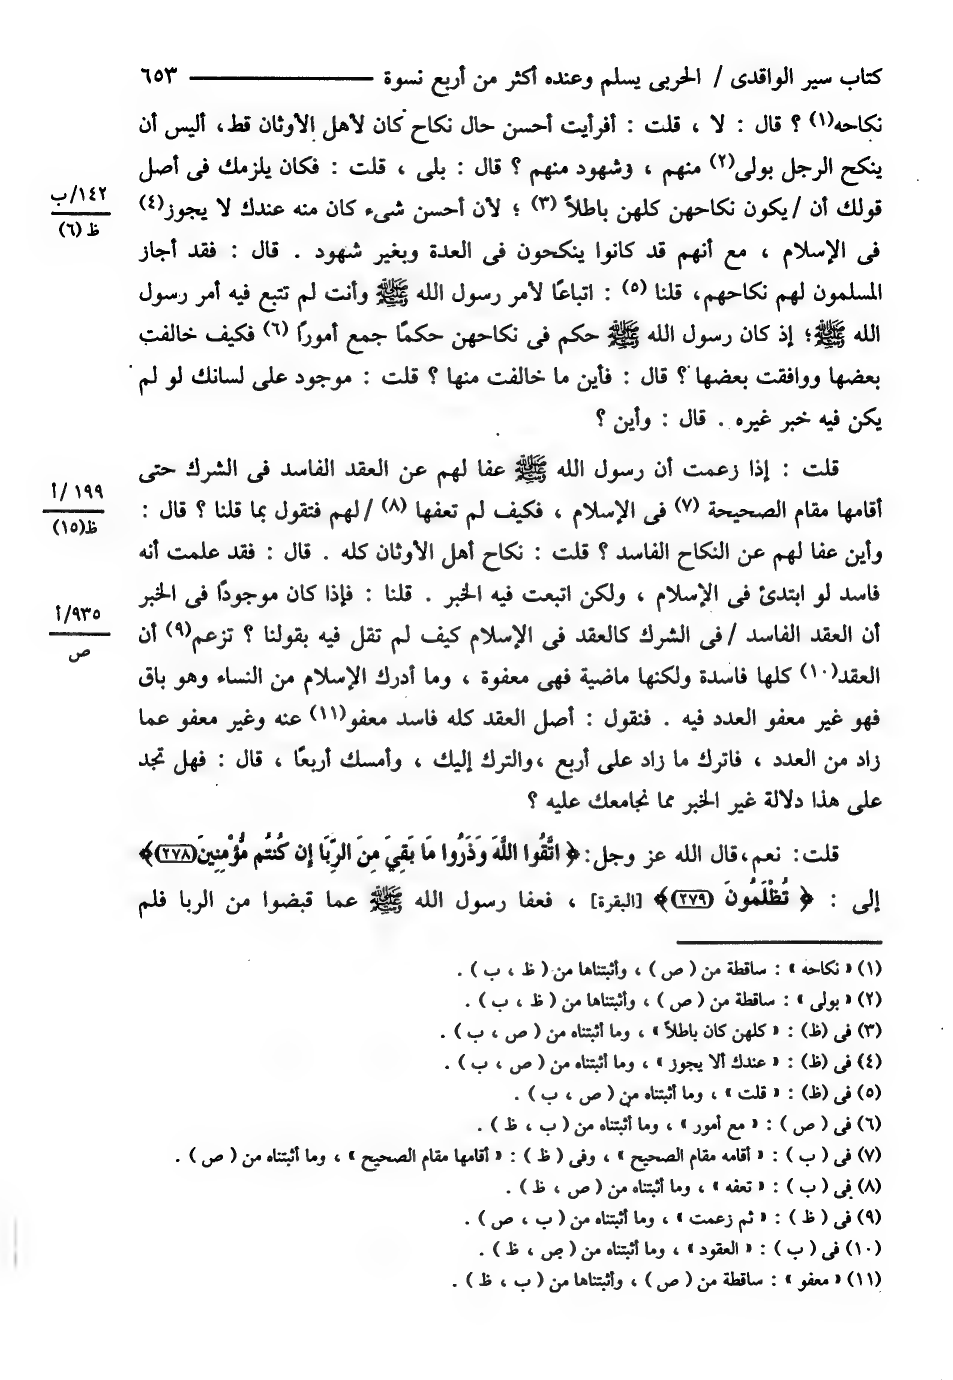 كتاب سير الواقدى / الحربى يسلم وعنده أكثر من أربع نسوة ٦٥٣
نكاحه(١) ؟ قال : لا ، قلت : أفرأيت أحسن حال نكاح كان لأهل الأوثان قط، أليس أن
ينكح الرجل بولى(٢) منهم ، وشهود منهم ؟ قال : بلى ، قلت : فكان يلزمك فى أصل
١٤٢/ب
ظ (٦)
قولك أن / يكون نكاحهن كلهن باطلاً (٣) ؛ لأن أحسن شىء كان منه عندك لا يجوز(٤)
فى الإسلام ، مع أنهم قد كانوا ينكحون فى العدة وبغير شهود . قال : فقد أجاز
المسلمون لهم نكاحهم، قلنا (٥) : اتباعًا لأمر رسول الله ﷺ وأنت لم تتبع فيه أمر رسول
الله ﷺ؛ إذ كان رسول الله ﷺ حكم فى نكاحهن حكمًا جمع أمورًا (٦) فكيف خالفت
بعضها ووافقت بعضها ؟ قال : فأين ما خالفت منها ؟ قلت : موجود على لسانك لو لم
يكن فيه خبر غيره . قال : وأين ؟
قلت : إذا زعمت أن رسول الله ﷺ عفا لهم عن العقد الفاسد فى الشرك حتى
١٩٩ /أ
ظ(١٥)
أقامها مقام الصحيحة (٧) فى الإسلام ، فكيف لم تعفها (٨) / لهم فتقول بما قلنا ؟ قال :
وأين عفا لهم عن النكاح الفاسد ؟ قلت : نكاح أهل الأوثان كله . قال : فقد علمت أنه
فاسد لو ابتدئ فى الإسلام ، ولكن اتبعت فيه الخبر . قلنا : فإذا كان موجودًا فى الخبر
٩٣٥/أ
ص
أن العقد الفاسد / فى الشرك كالعقد فى الإسلام كيف لم تقل فيه بقولنا ؟ تزعم(٩) أن
العقد(١٠) كلها فاسدة ولكنها ماضية فهى معفوة ، وما أدرك الإسلام من النساء وهو باق
فهو غير معفو العدد فيه . فنقول : أصل العقد كله فاسد معفو(١١) عنه وغير معفو عما
زاد من العدد ، فاترك ما زاد على أربع ،والترك إليك ، وأمسك أربعًا ، قال : فهل تجد
على هذا دلالة غير الخبر مما نجامعك عليه ؟
قلت: نعم،قال الله عز وجل:﴿ اتَّقُوا اللَّهَ وَذَرُوا مَا بَقِيَ مِنَ الرِّبَا إِن كُنتُم مُّؤْمِنِينَ (٢٧٨) ﴾
إلى : ﴿ تُظْلَمُونَ (٢٧٩) ﴾ [البقرة] ، فعفا رسول الله ﷺ عما قبضوا من الربا فلم
(١) « نكاحه » : ساقطة من ( ص ) ، وأثبتناها من ( ظ ، ب ) .
(٢) « بولى » : ساقطة من ( ص ) ، وأثبتناها من ( ظ ، ب ) .
(٣) فى (ظ) : « كلهن كان باطلاً » ، وما أثبتناه من ( ص ، ب ) .
(٤) فى (ظ) : « عندك ألا يجوز » ، وما أثبتناه من ( ص ، ب ) .
(٥) فى (ظ) : « قلت » ، وما أثبتناه من ( ص ، ب ) .
(٦) فى ( ص ) : « مع أمور » ، وما أثبتناه من ( ب ، ظ ) .
(٧) فى ( ب ) : « أقامه مقام الصحيح » ، وفى ( ظ ) : « أقامها مقام الصحيح » ، وما أثبتناه من ( ص ) .
(٨) فى ( ب ) : « تعفه » ، وما أثبتناه من ( ص ، ظ ) .
(٩) فى ( ظ ) : « ثم زعمت » ، وما أثبتناه من ( ب ، ص ) .
(١٠) فى ( ب ) : « العقود » ، وما أثبتناه من ( ص ، ظ ) .
(١١) « معفو » : ساقطة من ( ص ) ، وأثبتناها من ( ب ، ظ ) .